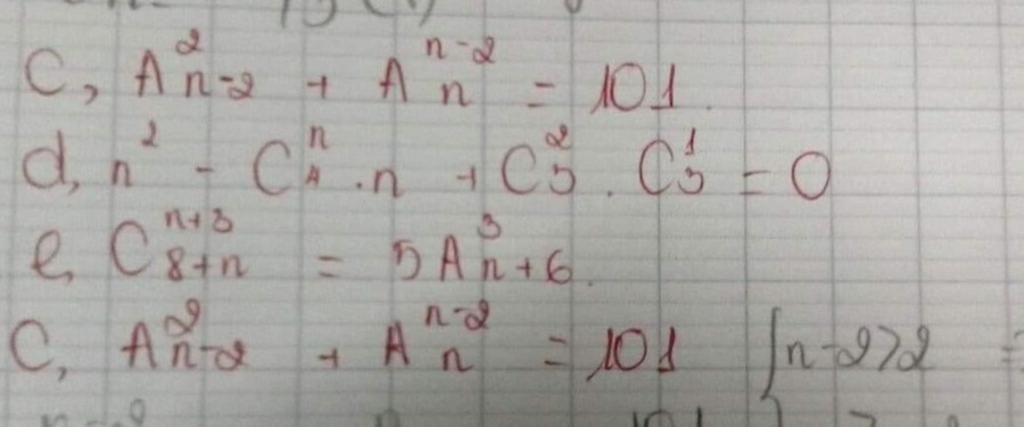 C, A²ₙ₋₂ + Aₙⁿ⁻² = 101.
d, n² - C₄ⁿ.n + C₃². C₃¹ = 0
e, C₈₊ₙⁿ⁺³ = 5A³ₙ₊₆.
C, A²ₙ₋₂ + Aₙⁿ⁻² = 101 { n-2>2 =